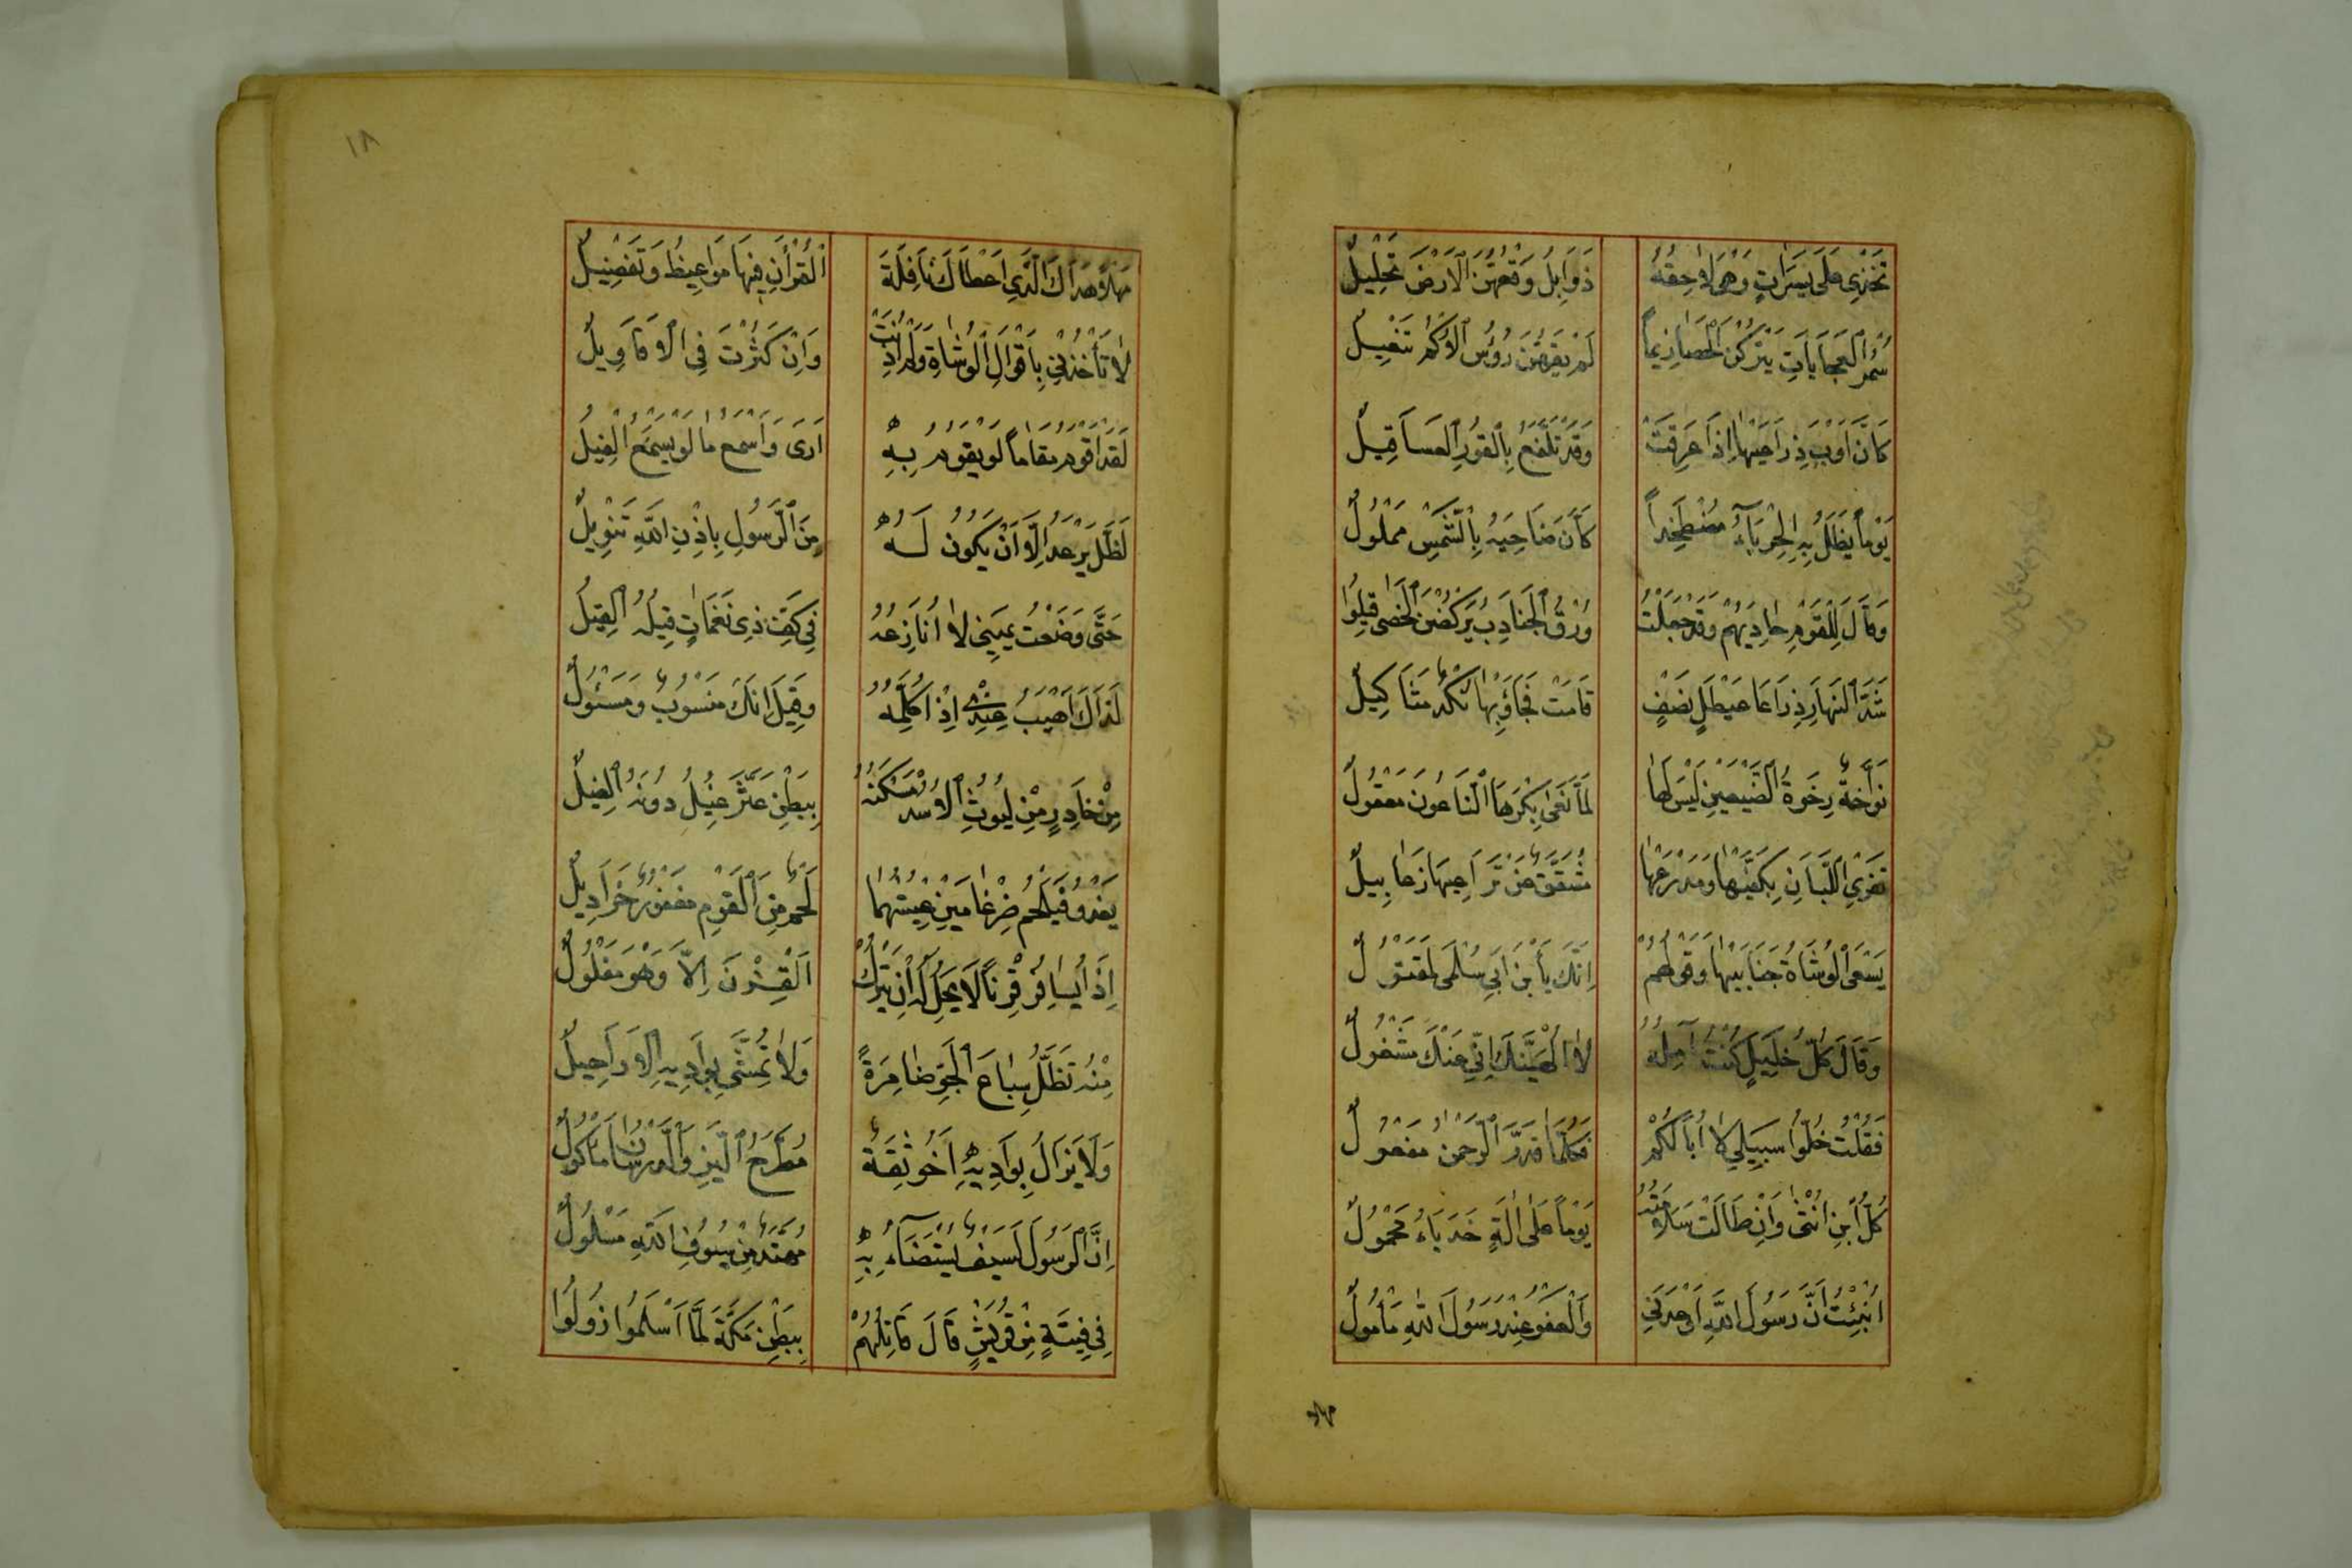 تَخْذِي عَلَى يَسَرَاتٍ وَهْيَ لَاحِقَةٌ ذَوَابِلٌ وَقْعُهُنَّ الْاَرْضَ تَحْلِيلُ
سُمْرُ الْعُجَايَاتِ يَتْرُكْنَ الْحَصَا زِيَمًا لَمْ يَقِهِنَّ رُؤُسَ الْاُكْمِ تَنْعِيلُ
كَاَنَّ اَوْبَ ذِرَاعَيْهَا اِذَا عَرِقَتْ وَقَدْ تَلَفَّعَ بِالْقُورِ الْعَسَاقِيلُ
يَوْمًا يَظَلُّ بِهِ الْحِرْبَآءُ مُصْطَخِدًا كَاَنَّ ضَاحِيَهُ بِالشَّمْسِ مَمْلُولُ
وَقَالَ لِلْقَوْمِ حَادِيهُمْ وَقَدْ جَعَلَتْ وُرْقُ الْجَنَادِبِ يَرْكُضْنَ الْحَصَى قِيلُوا
شَدَّ النَّهَارِ ذِرَاعَا عَيْطَلٍ نَصَفٍ قَامَتْ فَجَاوَبَهَا نُكْدٌ مَثَاكِيلُ
نَوَّاحَةٌ رِخْوَةُ الضَّبْعَيْنِ لَيْسَ لَهَا لَمَّا نَعَى بِكْرَهَا النَّاعُونَ مَعْقُولُ
تَفْرِي اللَّبَانَ بِكَفَّيْهَا وَمِدْرَعُهَا مُشَقَّقٌ عَنْ تَرَاقِيهَا رَعَابِيلُ
يَسْعَى الْوُشَاةُ جَنَابَيْهَا وَقَوْلُهُمْ اِنَّكَ يَا بْنَ اَبِي سُلْمَى لَمَقْتُولُ
وَقَالَ كُلُّ خَلِيلٍ كُنْتُ آمُلُهُ لَا اُلْهِيَنَّكَ اِنِّي عَنْكَ مَشْغُولُ
فَقُلْتُ خَلُّوا سَبِيلِي لَا اَبَا لَكُمُ فَكُلُّمَا قَدَّرَ الرَّحْمٰنُ مَفْعُولُ
كُلُّ ابْنِ اُنْثَى وَاِنْ طَالَتْ سَلَامَتُهُ يَوْمًا عَلَى اٰلَةٍ حَدْبَاءَ مَحْمُولُ
اُنْبِئْتُ اَنَّ رَسُولَ اللّٰهِ اَوْعَدَنِي وَالْعَفْوُ عِنْدَ رَسُولِ اللّٰهِ مَأْمُولُ
مهلا
١٨
مَهْلًا هَدَاكَ الَّذِي اَعْطَاكَ نَافِلَةَ الْقُرْاٰنِ فِيهَا مَوَاعِيظُ وَتَفْصِيلُ
لَا تَأْخُذَنِّي بِاَقْوَالِ الْوُشَاةِ وَلَمْ اُذْنِبْ وَاِنْ كَثُرَتْ فِي الْاَقَاوِيلُ
لَقَدْ اَقُومُ مَقَامًا لَوْ يَقُومُ بِهِ اَرَى وَاَسْمَعُ مَا لَوْ يَسْمَعُ الْفِيلُ
لَظَلَّ يَرْعَدُ اِلَّا اَنْ يَكُونَ لَهُ مِنَ الرَّسُولِ بِاِذْنِ اللّٰهِ تَنْوِيلُ
حَتَّى وَضَعْتُ يَمِينِي لَا اُنَازِعُهُ فِي كَفِّ ذِي نَغَمَاتٍ قِيلُهُ الْقِيلُ
لَذَاكَ اَهْيَبُ عِنْدِي اِذْ اُكَلِّمُهُ وَقِيلَ اِنَّكَ مَنْسُوبٌ وَمَسْئُولُ
مِنْ خَادِرٍ مِنْ لُيُوثِ الْاُسْدِ مَسْكَنُهُ بِبَطْنِ عَثَّرَ غِيلٌ دُونَهُ الْغِيلُ
يَغْدُو فَيُلْحِمُ ضِرْغَامَيْنِ عَيْشُهُمَا لَحْمٌ مِنَ الْقَوْمِ مَعْفُورٌ خَرَادِيلُ
اِذَا يُسَاوِرُ قِرْنًا لَا يَحِلُّ لَهُ اَنْ يَتْرُكَ الْقِرْنَ اِلَّا وَهُوَ مَفْلُولُ
مِنْهُ تَظَلُّ سِبَاعُ الْجَوِّ ضَامِرَةً وَلَا تُمَشَّى بِوَادِيهِ الْاَرَاجِيلُ
وَلَا يَزَالُ بِوَادِيهِ اَخُو ثِقَةٍ مُطَرَّحُ الْبَزِّ وَالدِّرْسَانِ مَأْكُولُ
اِنَّ الرَّسُولَ لَسَيْفٌ يُسْتَضَآءُ بِهِ مُهَنَّدٌ مِنْ سُيُوفِ اللّٰهِ مَسْلُولُ
فِي فِتْيَةٍ مِنْ قُرَيْشٍ قَالَ قَائِلُهُمْ بِبَطْنِ مَكَّةَ لَمَّا اَسْلَمُوا زُولُوا